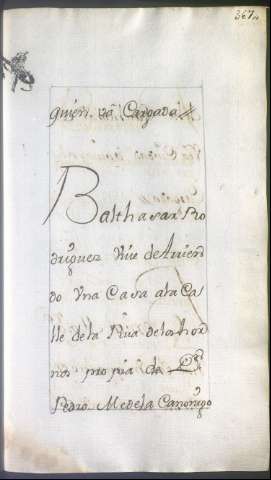 367
quien. vá Cargada //
Balthasar Ro
driguez Vive de Arrien
do Vna Casa a la Ca
lle de la Rúa de los hor
nos propia de Dn
Pedro Medela Canonigo